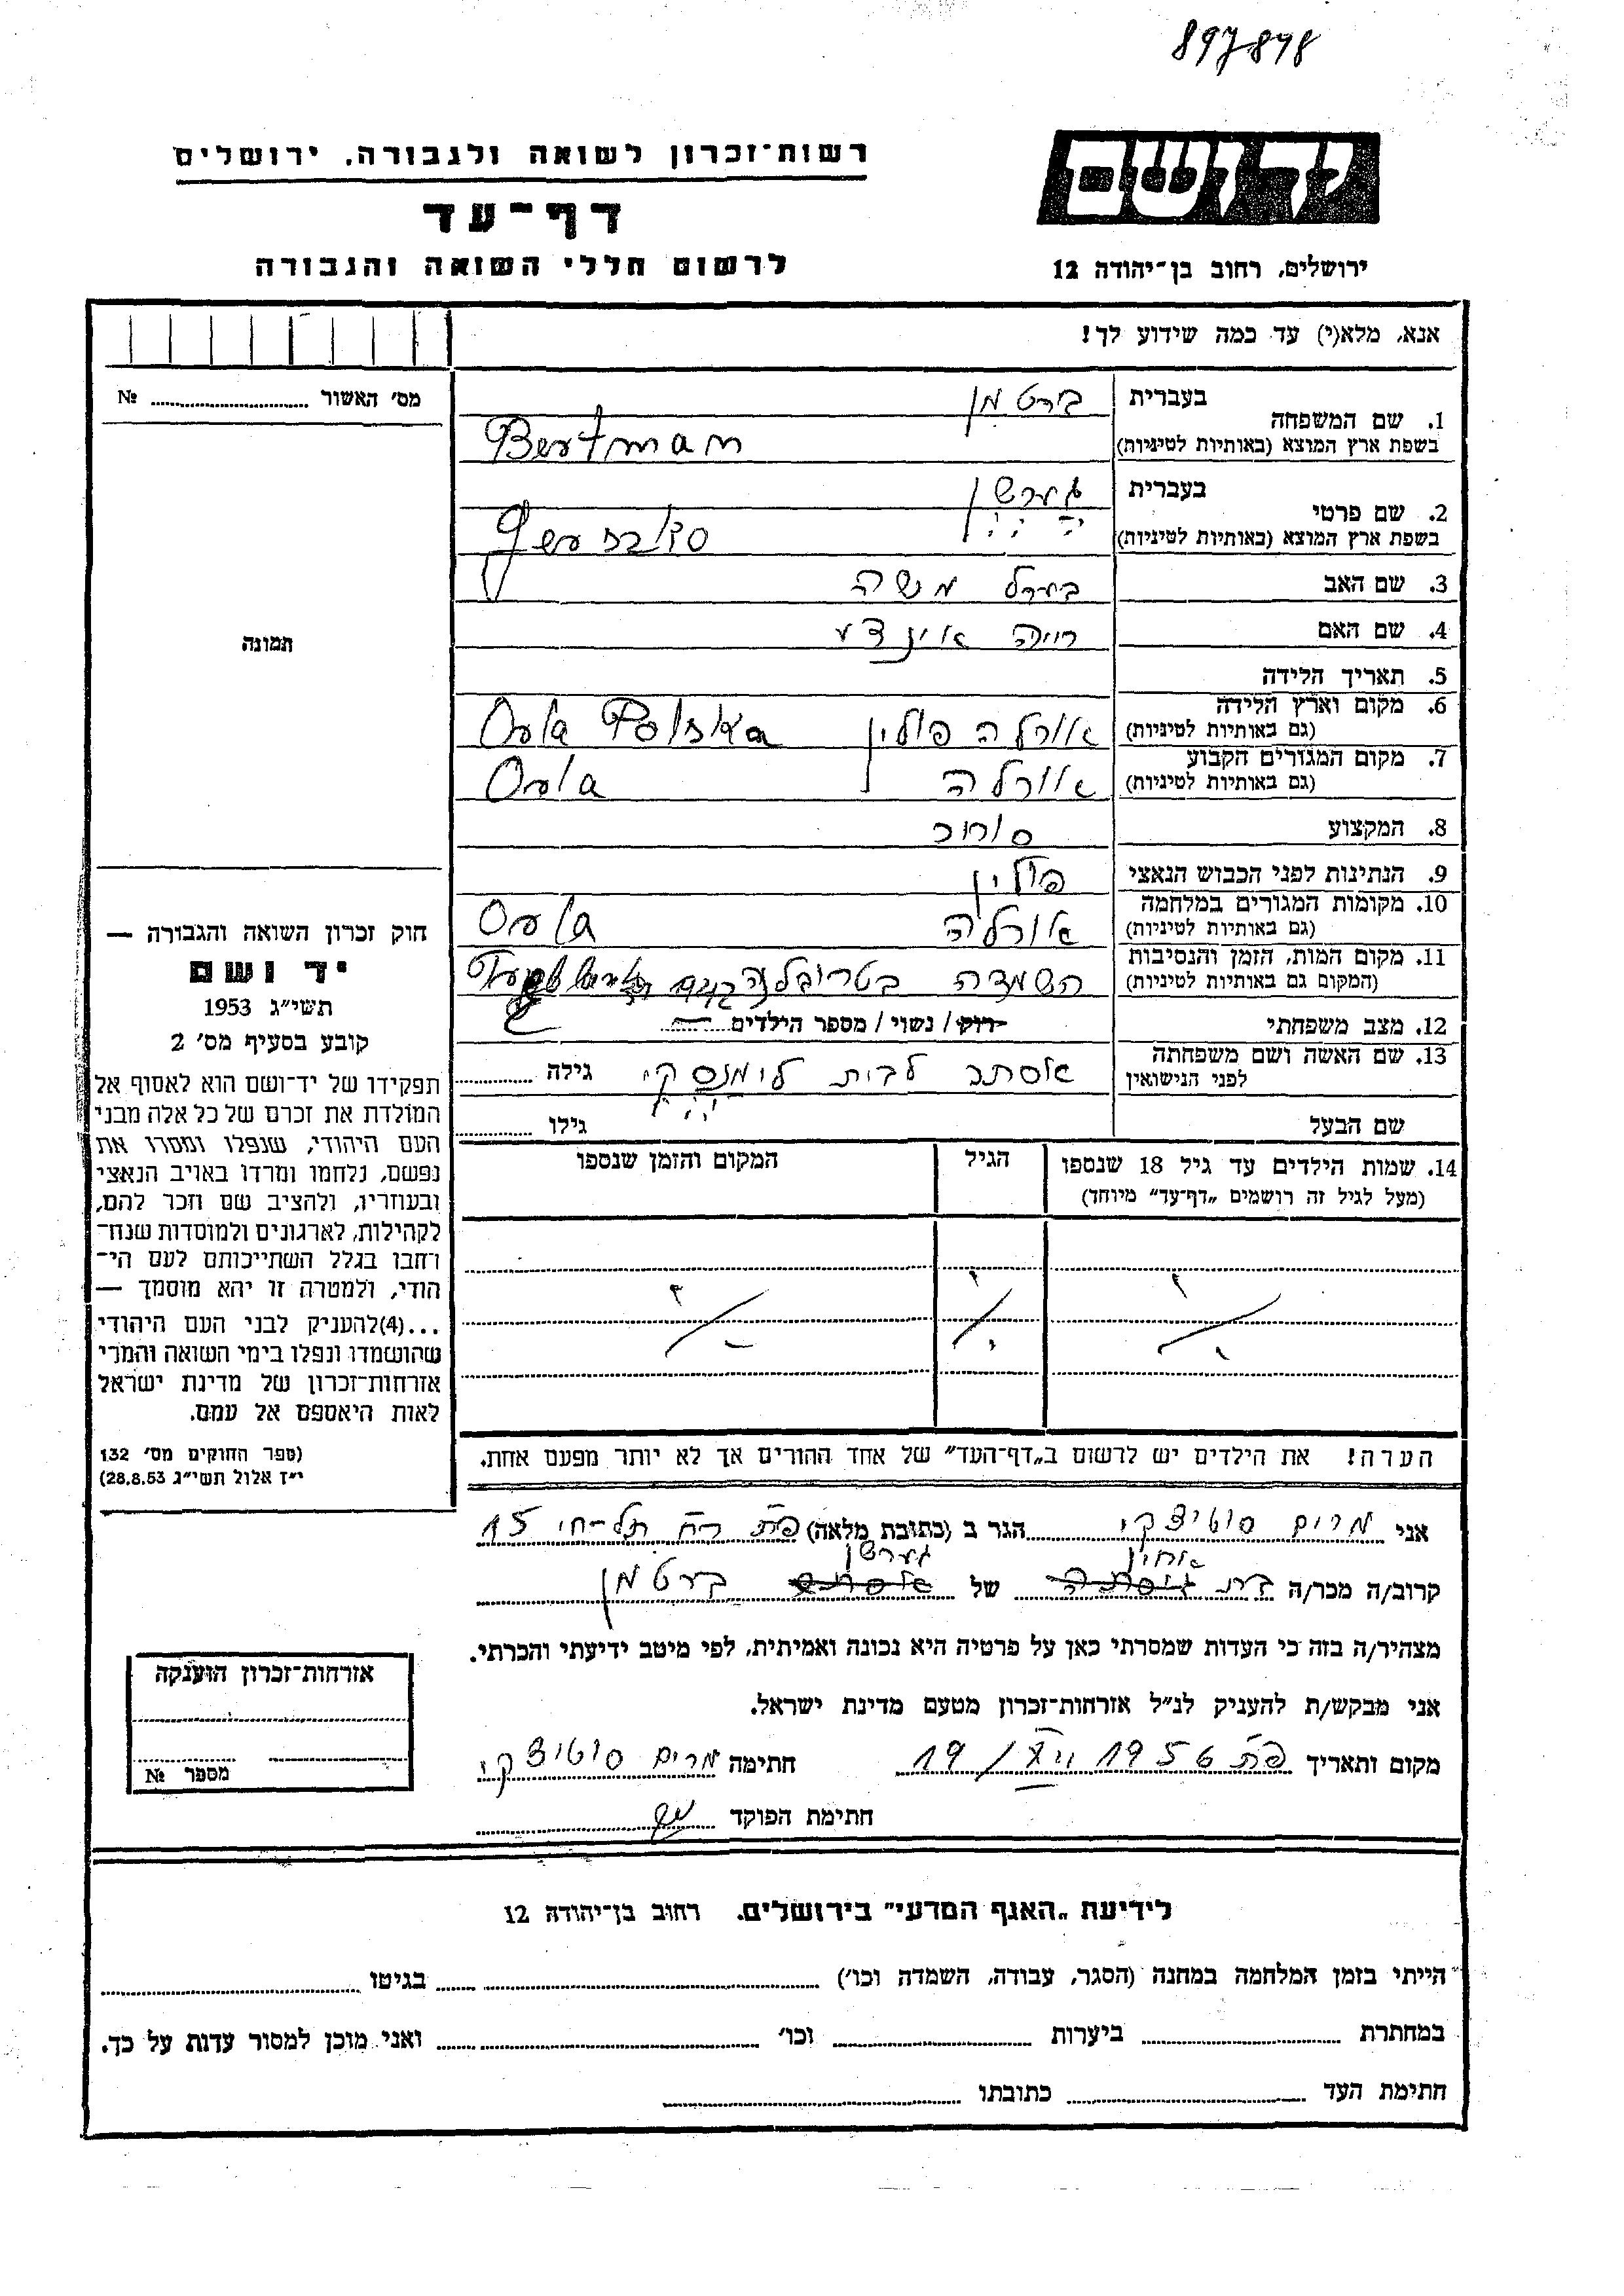 897878
רשות־זכרון לשואה ולגבורה, ירושלים
דף־עד
לרשום חללי השואה והגבורה
יד ושם
ירושלים, רחוב בן־יהודה 12
אנא, מלא(י) עד כמה שידוע לך!
מס' האשור № ........
1. שם המשפחה בעברית ברטמן
בשפת ארץ המוצא (באותיות לטיניות) Bertman
2. שם פרטי בעברית גערשן
בשפת ארץ המוצא (באותיות לטיניות)
3. שם האב בערל משה
4. שם האם חיה
5. תאריך הלידה
6. מקום וארץ הלידה (גם באותיות לטיניות) אורלה פולין Orla Polska
7. מקום המגורים הקבוע (גם באותיות לטיניות) אורלה Orla
8. המקצוע סוחר
9. הנתינות לפני הכבוש הנאצי פולין
10. מקומות המגורים במלחמה (גם באותיות לטיניות) אורלה Orla
11. מקום המות, הזמן והנסיבות (המקום גם באותיות לטיניות) השמדה בטרבלינקה
12. מצב משפחתי רוק / נשוי / מספר הילדים
13. שם האשה ושם משפחתה לפני הנישואין אסתר לבית לימנסקי גילה
שם הבעל גילו
14. שמות הילדים עד גיל 18 שנספו
(מעל לגיל זה רושמים „דף־עד" מיוחד)
הגיל
המקום והזמן שנספו
הערה! את הילדים יש לרשום ב„דף־העד" של אחד ההורים אך לא יותר מפעם אחת.
תמונה
חוק זכרון השואה והגבורה —
יד ושם
תשי"ג 1953
קובע בסעיף מס' 2
תפקידו של יד־ושם הוא לאסוף אל
המולדת את זכרם של כל אלה מבני
העם היהודי, שנפלו ומסרו את
נפשם, נלחמו ומרדו באויב הנאצי
ובעוזריו, ולהציב שם וזכר להם,
לקהילות, לארגונים ולמוסדות שנח־
רחבו בגלל השתייכותם לעם הי־
הודי, ולמטרה זו יהא מוסמך —
...(4)להעניק לבני העם היהודי
שהושמדו ונפלו בימי השואה והמרי
אזרחות־זכרון של מדינת ישראל
לאות היאספם אל עמם.
(ספר החוקים מס' 132
י"ז אלול תשי"ג 28.8.53)
אני מרים סוטיצקי הגר ב (כתובת מלאה) פ"ת רח תל-חי 15
קרוב/ה מכר/ה בת אחין של גערשן ברטמן
מצהיר/ה בזה כי העדות שמסרתי כאן על פרטיה היא נכונה ואמיתית, לפי מיטב ידיעתי והכרתי.
אני מבקש/ת להעניק לנ"ל אזרחות־זכרון מטעם מדינת ישראל.
מקום ותאריך פ"ת 1956 חתימה מרים סוטיצקי
חתימת הפוקד
אזרחות־זכרון הוענקה
מספר №
לידיעת „האגף המדעי" בירושלים, רחוב בן־יהודה 12
הייתי בזמן המלחמה במחנה (הסגר, עבודה, השמדה וכו') בגיטו
במחתרת ביערות וכו' ואני מוכן למסור עדות על כך.
חתימת העד כתובתו